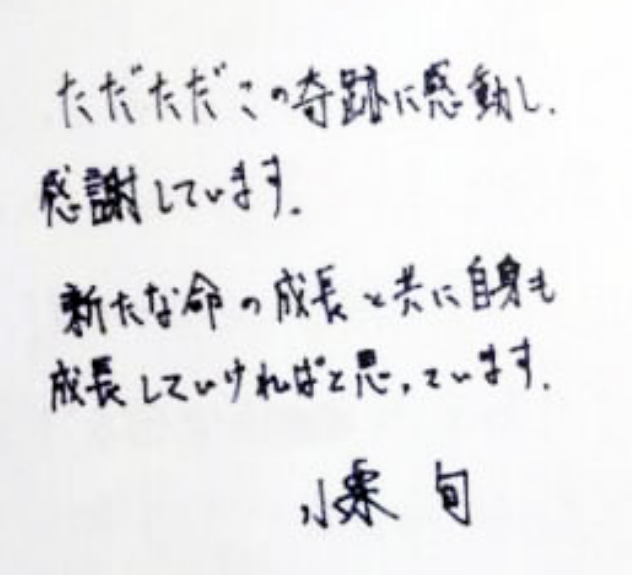 ただただこの奇跡に感動し、
感謝しています。
新たな命の成長と共に自身も
成長していければと思っています。
小栗 旬